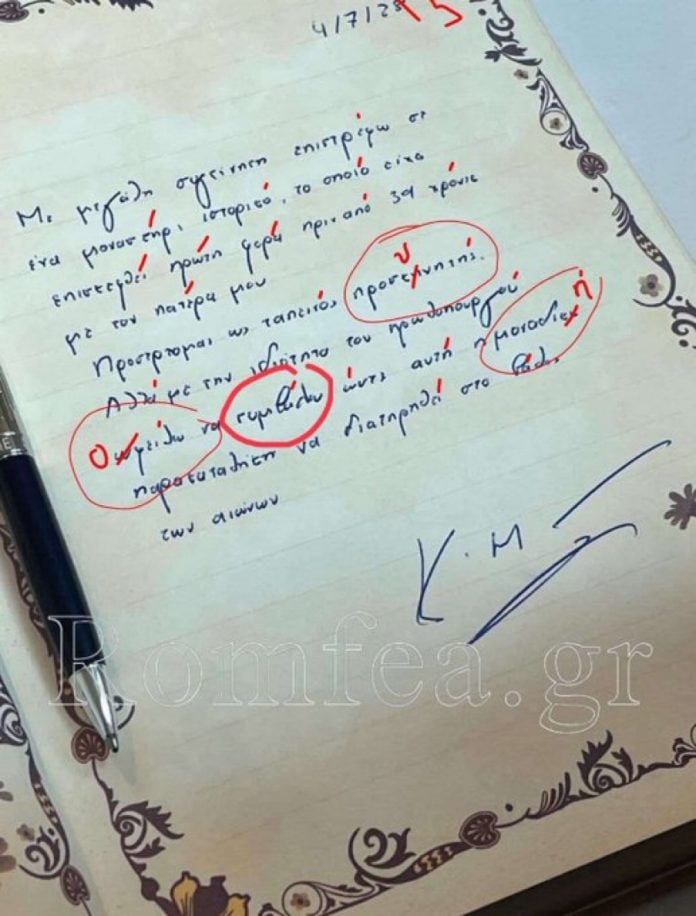 4/7/25
Με μεγάλη συγκίνηση επιστρέφω σε
ένα μοναστήρι ιστορικό, το οποίο είχα
επισκεφθεί πρώτη φορά πριν από 39 χρόνια
με τον πατέρα μου
Προσέρχομαι ως ταπεινός
υ
προσκηνητής.
Αλλά με την ιδιότητα του πρωθυπουργού
Ο
ωφείλω να συμβάλω ώστε αυτή η μοναδικη
ή
παρακαταθήκη να διατηρηθεί στο βάθος
των αιώνων
Κ. Μ
Romfea.gr